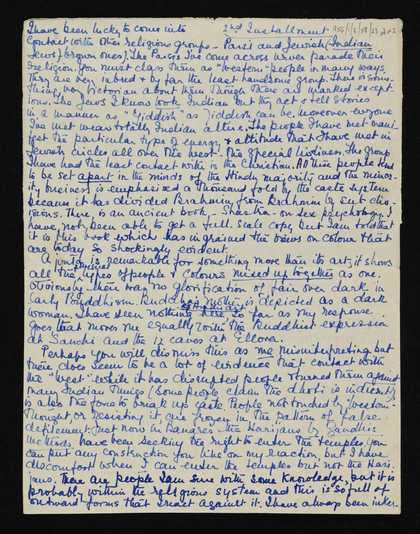 I have been lucky to come into 2nd Installment
Contact with other religious groups - Parsi and Jewish (Indian
Jews) brown ones. The Parsis I've come across never parade their
religion. You must class them as "Western" people in many ways
They are very inbred & by far the least handsome group. There is some-
thing very Victorian about them though there are marked except-
ions. The Jews I know look Indian but they act & tell stories
in a manner as "Yiddish" as Yiddish can be. Moreover everyone
I've met wears totally Indian attire. The people I have met
yet the particular type of energy & attitude that I have met in
Jewish circles all over the West - the special kindness. The group
I have had the least contact with is the Christian. All these people tend
to be set apart in the minds of the Hindu majority and the minor-
ity business is emphasised a thousand fold by the caste system
because it has divided Brahmin from Brahmin by sub divi-
sions. There is an ancient book - Shastra - on sex psychology. I
have not been able to get a full scale copy but I am told that
it is this book which has ingrained the views on colour that
are today so shockingly evident.
Ajunta is remarkable for something more than its art; it shows
all the physical types of people & colours mixed up together as one.
Obviously there was no glorification of fair over dark in
Early Buddhism. Buddha's mother is depicted as a dark
woman. I have seen nothing here so far as my response
goes that moves me equally with the Buddhist expression
at Sanchi and the 12 caves at Ellora.
Perhaps you will dismiss this as me misinterpreting but
there does seem to be a lot of evidence that contact with
the "West" while it has disrupted people & turned them against
many Indian things (some people claim the dhoti is indecent)
is also the force to break up caste. People not touched by Western
thought or resisting it are frozen in the pattern of false
defilement. Just now in Banares - the Harijans by Gandhi's
methods have been seeking the right to enter the temples. You
can put any construction you like on my reaction, but I have
discomfort when I can enter the temples but not the Hari
jans. There are people I am sure with some knowledge, but it is
probably within the religious system and this is so full of
outward forms that I react against it. I have always been inter-